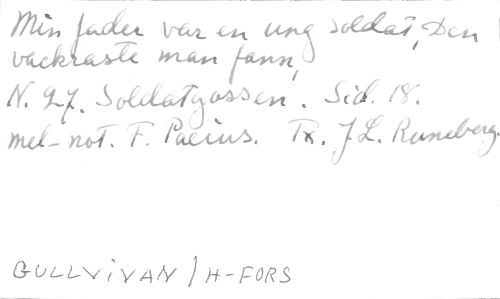 Min fader var en ung soldat, Den
vackraste man fann,
N. 27. Soldatgossen. Sid. 18.
mel-not. F. Pacius. Tx. J L. Runeberg.
GULLVIVAN / H-FORS